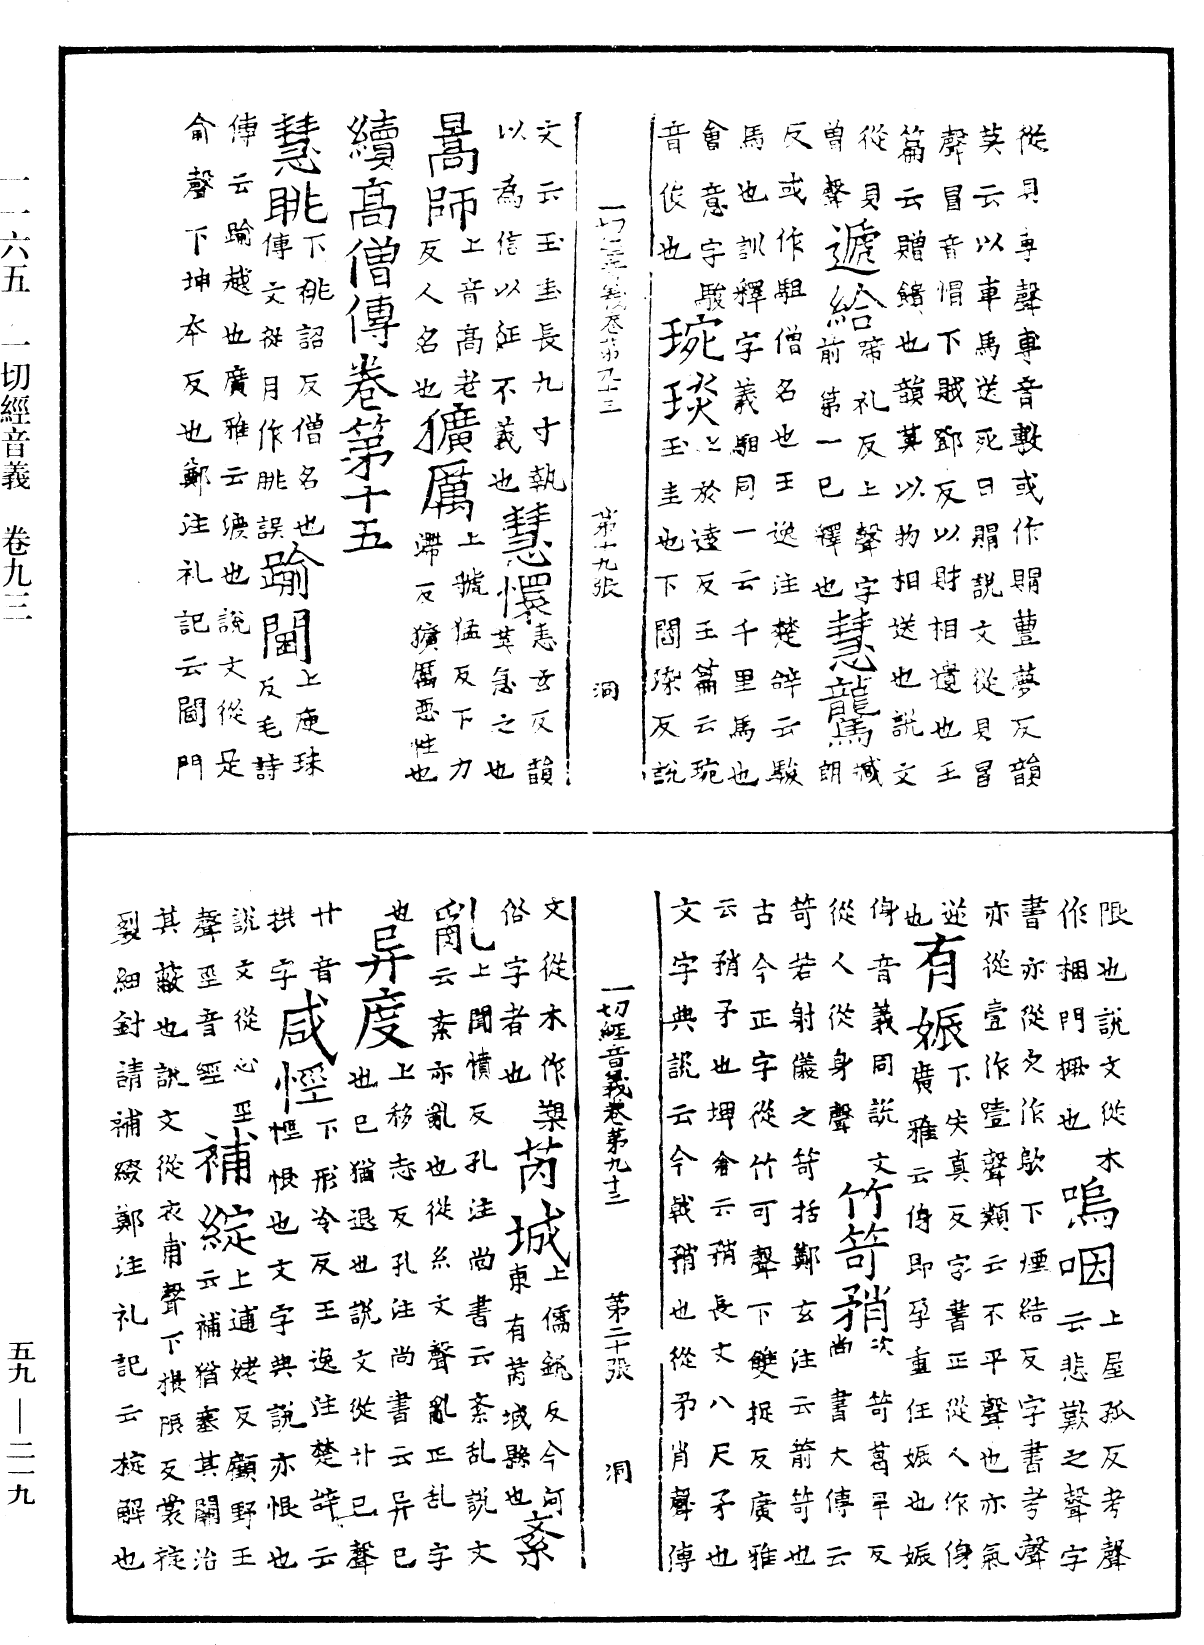 從具專聲專音敷或作賵蕈夢反韻
英云以車馬送死曰賵說文從貝冒
聲冒音帽下賊鄧反以財相遺也玉
篇云贈饋也韻英以物相送也說文
從貝曾聲 遞給 啼礼反上聲字前第一巳釋也 慧龍馬 臧朗
反或作駔僧名也王逸注楚辝云駿
馬也訓釋字義駔同一云千里馬也
會意字駿音俊也 琬琰 上於遠反玉篇云琬玉圭也下閻染反說
一切經音義卷第九十三 第十九張 洞
文云玉圭長九寸執以為信以征不義也 慧懁 恚玄反韻英急之也
暠師 上音高老反人名也 獷厲 上虢猛反下力滯反獷厲惡性也
續高僧傳卷第十五
慧朓 下祧詔反僧名也傳文從月作朓誤 踰閫 上庾珠反毛詩
傳云踰越也廣雅云渡也說文從足
俞聲下坤夲反也鄭注礼記云閫門
限也說文從木作梱門橛也 嗚咽 上屋孤反考聲云悲歎之聲字
書亦從欠作歍下煙結反字書考聲
亦從壹作噎聲類云不平聲也亦氣
逆也 有娠 下失真反字書正從人作侲廣雅云侲即孕重任娠也娠
侲音義同說文從人從身聲 竹笴矟 次笴葛旱反尚書大傳云
笴若射儀之笴括鄭玄注云箭笴也
古今正字從竹可聲下雙捉反廣雅
云矟矛也埤倉云矟長丈八尺矛也
文字典說云今戟矟也從矛肖聲傳
一切經音義卷第九十三 第二十張 洞
文從木作槊俗字者也 芮城 上儒銳反今河東有芮城縣也 紊
亂 上聞憤反孔注尚書云紊乱說文云紊亦亂也從糸文聲亂正乱字
也 异度 上移志反孔注尚書云异巳也巳猶退也說文從廾巳聲
廾音拱字 咸悭 下形冷反王逸注楚辝云悭恨也文字典說亦恨也
說文從心巠聲巠音經 補綻 上逋姥反顧野王云補猶塞其闕治
其蔽也說文從衣甫聲下掁限反裳䘺
裂細針請補綴鄭注礼記云綻解也
一一六五 一切經音義 卷九三
五九——二一九